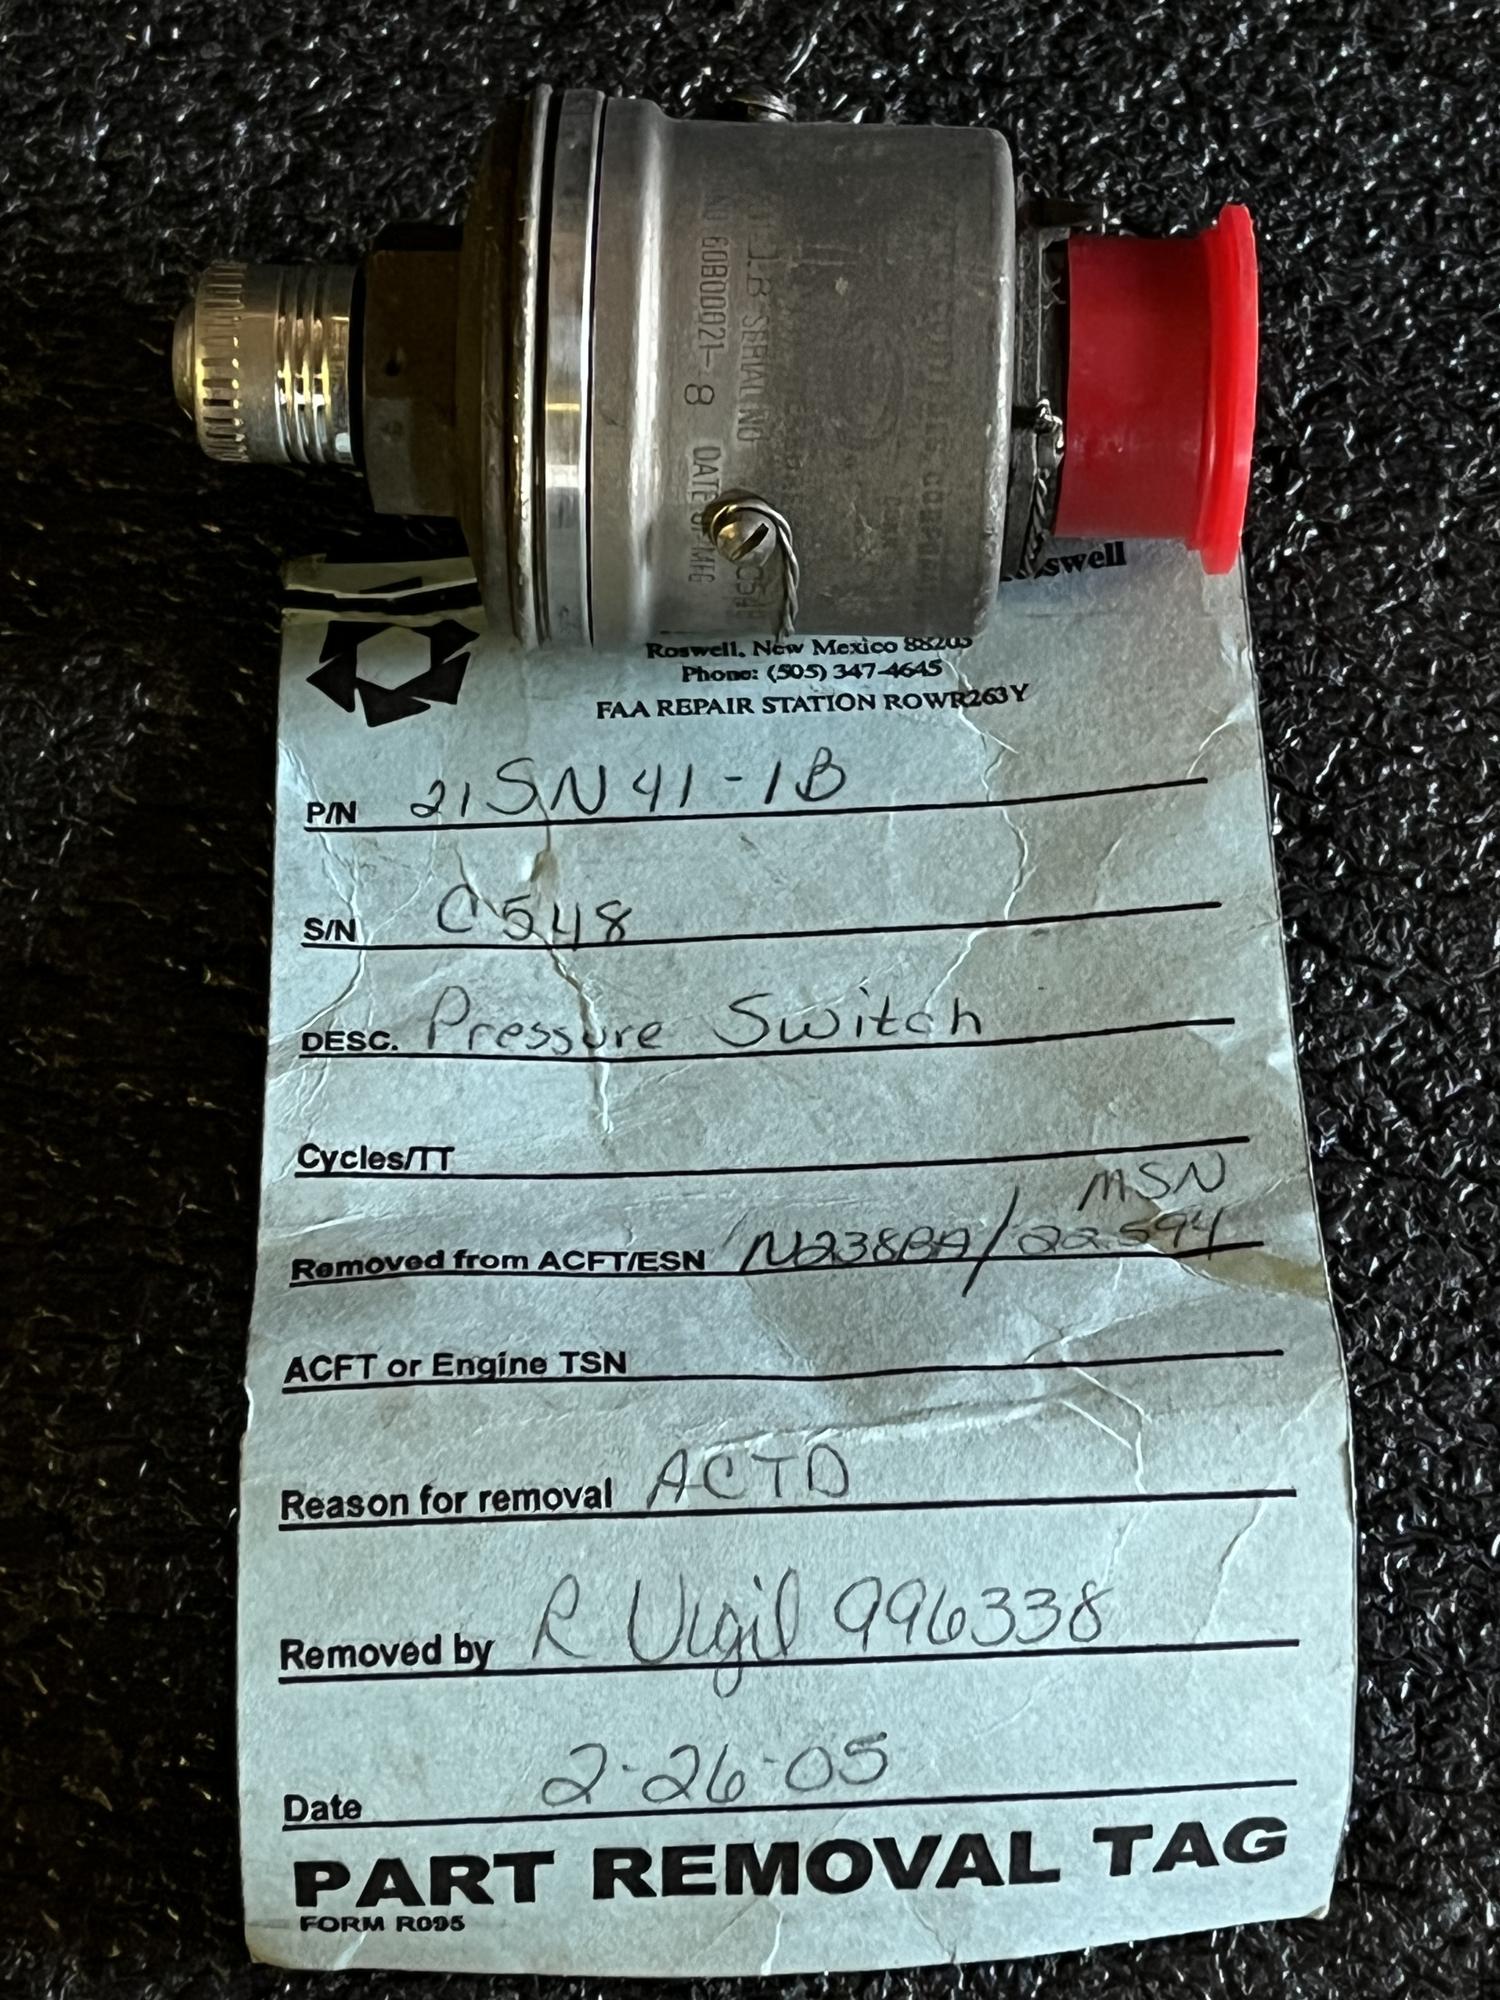 1B SERIAL NO
NO 60B00021-8 DATE OF MFG
Roswell
Roswell, New Mexico 88203
Phone: (505) 347-4645
FAA REPAIR STATION ROWR263Y
P/N 21SN41-1B
S/N C548
DESC. Pressure Switch
Cycles/TT
MSN
Removed from ACFT/ESN N238BA/22594
ACFT or Engine TSN
Reason for removal ACTD
Removed by R Vigil 996338
Date 2-26-05
PART REMOVAL TAG
FORM R095